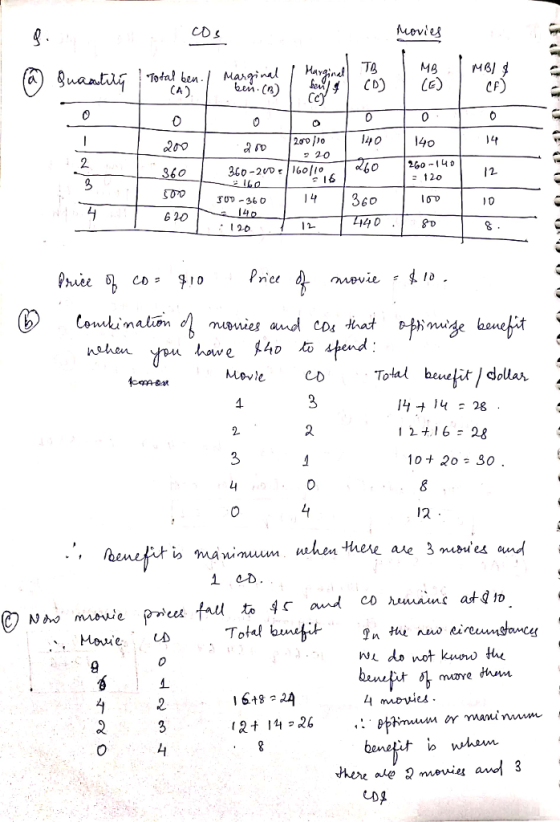 Q. CDs Movies
(a) Quantity Total ben. (A) Marginal ben. (B) Marginal ben/$ (C) TB (D) MB (E) MB/$ (F)
0 0 0 0 0 0 0
1 200 200 200/10 = 20 140 140 14
2 360 360-200 = 160 160/10 = 16 260 260-140 = 120 12
3 500 500-360 = 140 14 360 100 10
4 620 120 12 440 80 8.
Price of CD = $10 Price of movie = $10.
(b) Combination of movies and CDs that optimize benefit
when you have $40 to spend:
Movie CD Total benefit/dollar
1 3 14 + 14 = 28.
2 2 12 + 16 = 28
3 1 10 + 20 = 30.
4 0 8
0 4 12.
∴ Benefit is maximum when there are 3 movies and
1 CD.
(c) Now movie prices fall to $5 and CD remains at $10.
∴ Movie CD Total benefit In the new circumstances
8 0 we do not know the
6 1 benefit of more than
4 2 16+8 = 24 4 movies.
2 3 12 + 14 = 26 ∴ optimum or maximum
0 4 8 benefit is when
there are 2 movies and 3
CDs